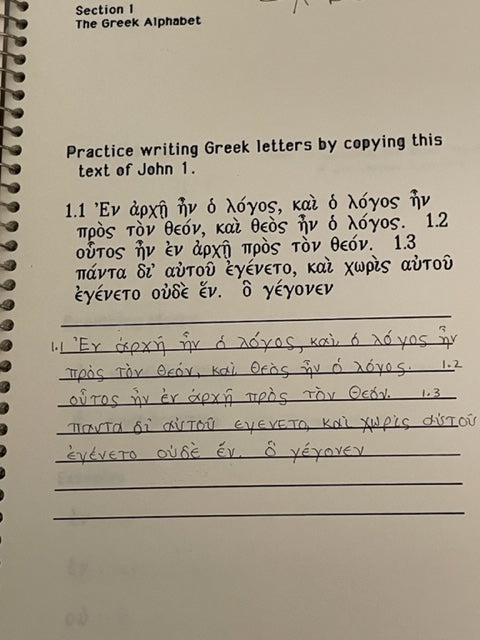 Section 1
The Greek Alphabet
Practice writing Greek letters by copying this
text of John 1.
1.1 Ἐν ἀρχῇ ἦν ὁ λόγος, καὶ ὁ λόγος ἦν
πρὸς τὸν θεόν, καὶ θεὸς ἦν ὁ λόγος. 1.2
οὗτος ἦν ἐν ἀρχῇ πρὸς τὸν θεόν. 1.3
πάντα δι' αὐτοῦ ἐγένετο, καὶ χωρὶς αὐτοῦ
ἐγένετο οὐδὲ ἕν. ὃ γέγονεν
1.1 Ἐν ἀρχῇ ἦν ὁ λόγος, καὶ, ὁ λόγος ἦν
πρὸς τὸν θεόν, καὶ, θεὸς ἦν ὁ λόγος. 1.2
οὗτος ἦν ἐν ἀρχῇ πρὸς τὸν θεόν. 1.3
παντα δι' αὐτοῦ εγενετο, καὶ χωρὶς αὐτοῦ
ἐγένετο οὐδὲ ἕν. ὃ γέγονεν